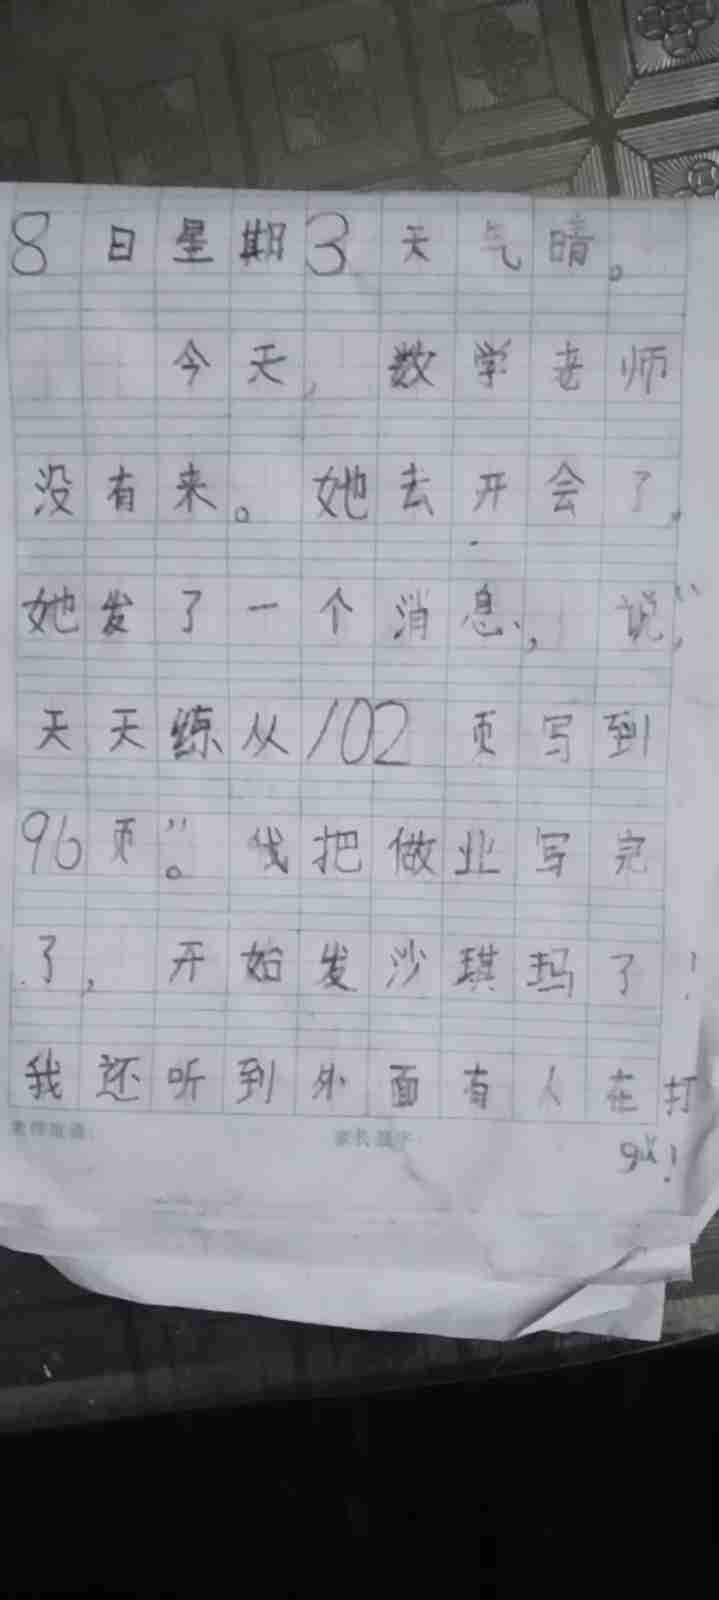 8日星期3天气晴。
今天，数学老师
没有来。她去开会了，
她发了一个消息，说，“
天天练从102页写到
96页”。我把做业写完
了，开始发沙琪玛了！
我还听到外面有人在打
家长签字：